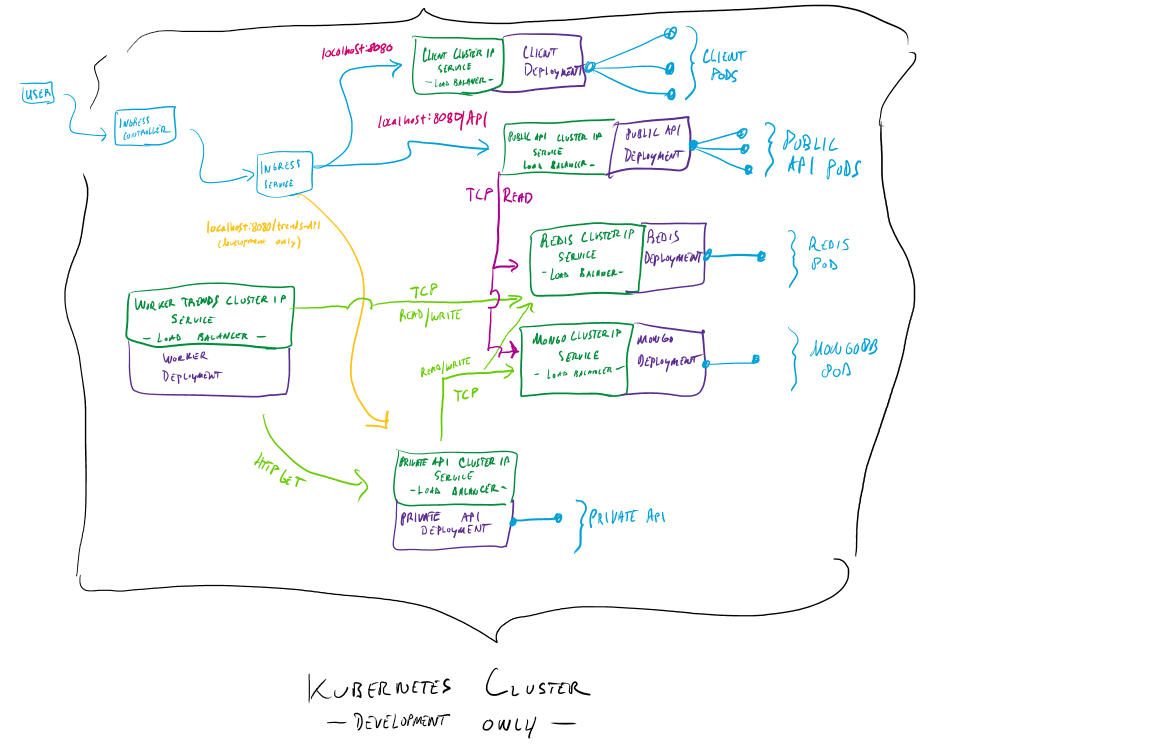 localhost:8080
CLIENT CLUSTER IP
SERVICE
- LOAD BALANCER -
CLIENT
DEPLOYMENT
CLIENT
PODS
USER
INGRESS
CONTROLLER
localhost:8080/API
PUBLIC API CLUSTER IP
SERVICE
LOAD BALANCER -
PUBLIC API
DEPLOYMENT
PUBLIC
API PODS
INGRESS
SERVICE
TCP READ
localhost:8080/trends-API
(development only)
REDIS CLUSTER IP
SERVICE
- LOAD BALANCER -
REDIS
DEPLOYMENT
REDIS
POD
WORKER TRENDS CLUSTER IP
SERVICE
- LOAD BALANCER -
WORKER
DEPLOYMENT
TCP
READ/WRITE
MONGO CLUSTER IP
SERVICE
- LOAD BALANCER -
MONGO
DEPLOYMENT
MONGODB
POD
READ/WRITE
TCP
HTTP GET
PRIVATE API CLUSTER IP
SERVICE
- LOAD BALANCER -
PRIVATE API
DEPLOYMENT
PRIVATE API
KUBERNETES CLUSTER
- DEVELOPMENT ONLY -